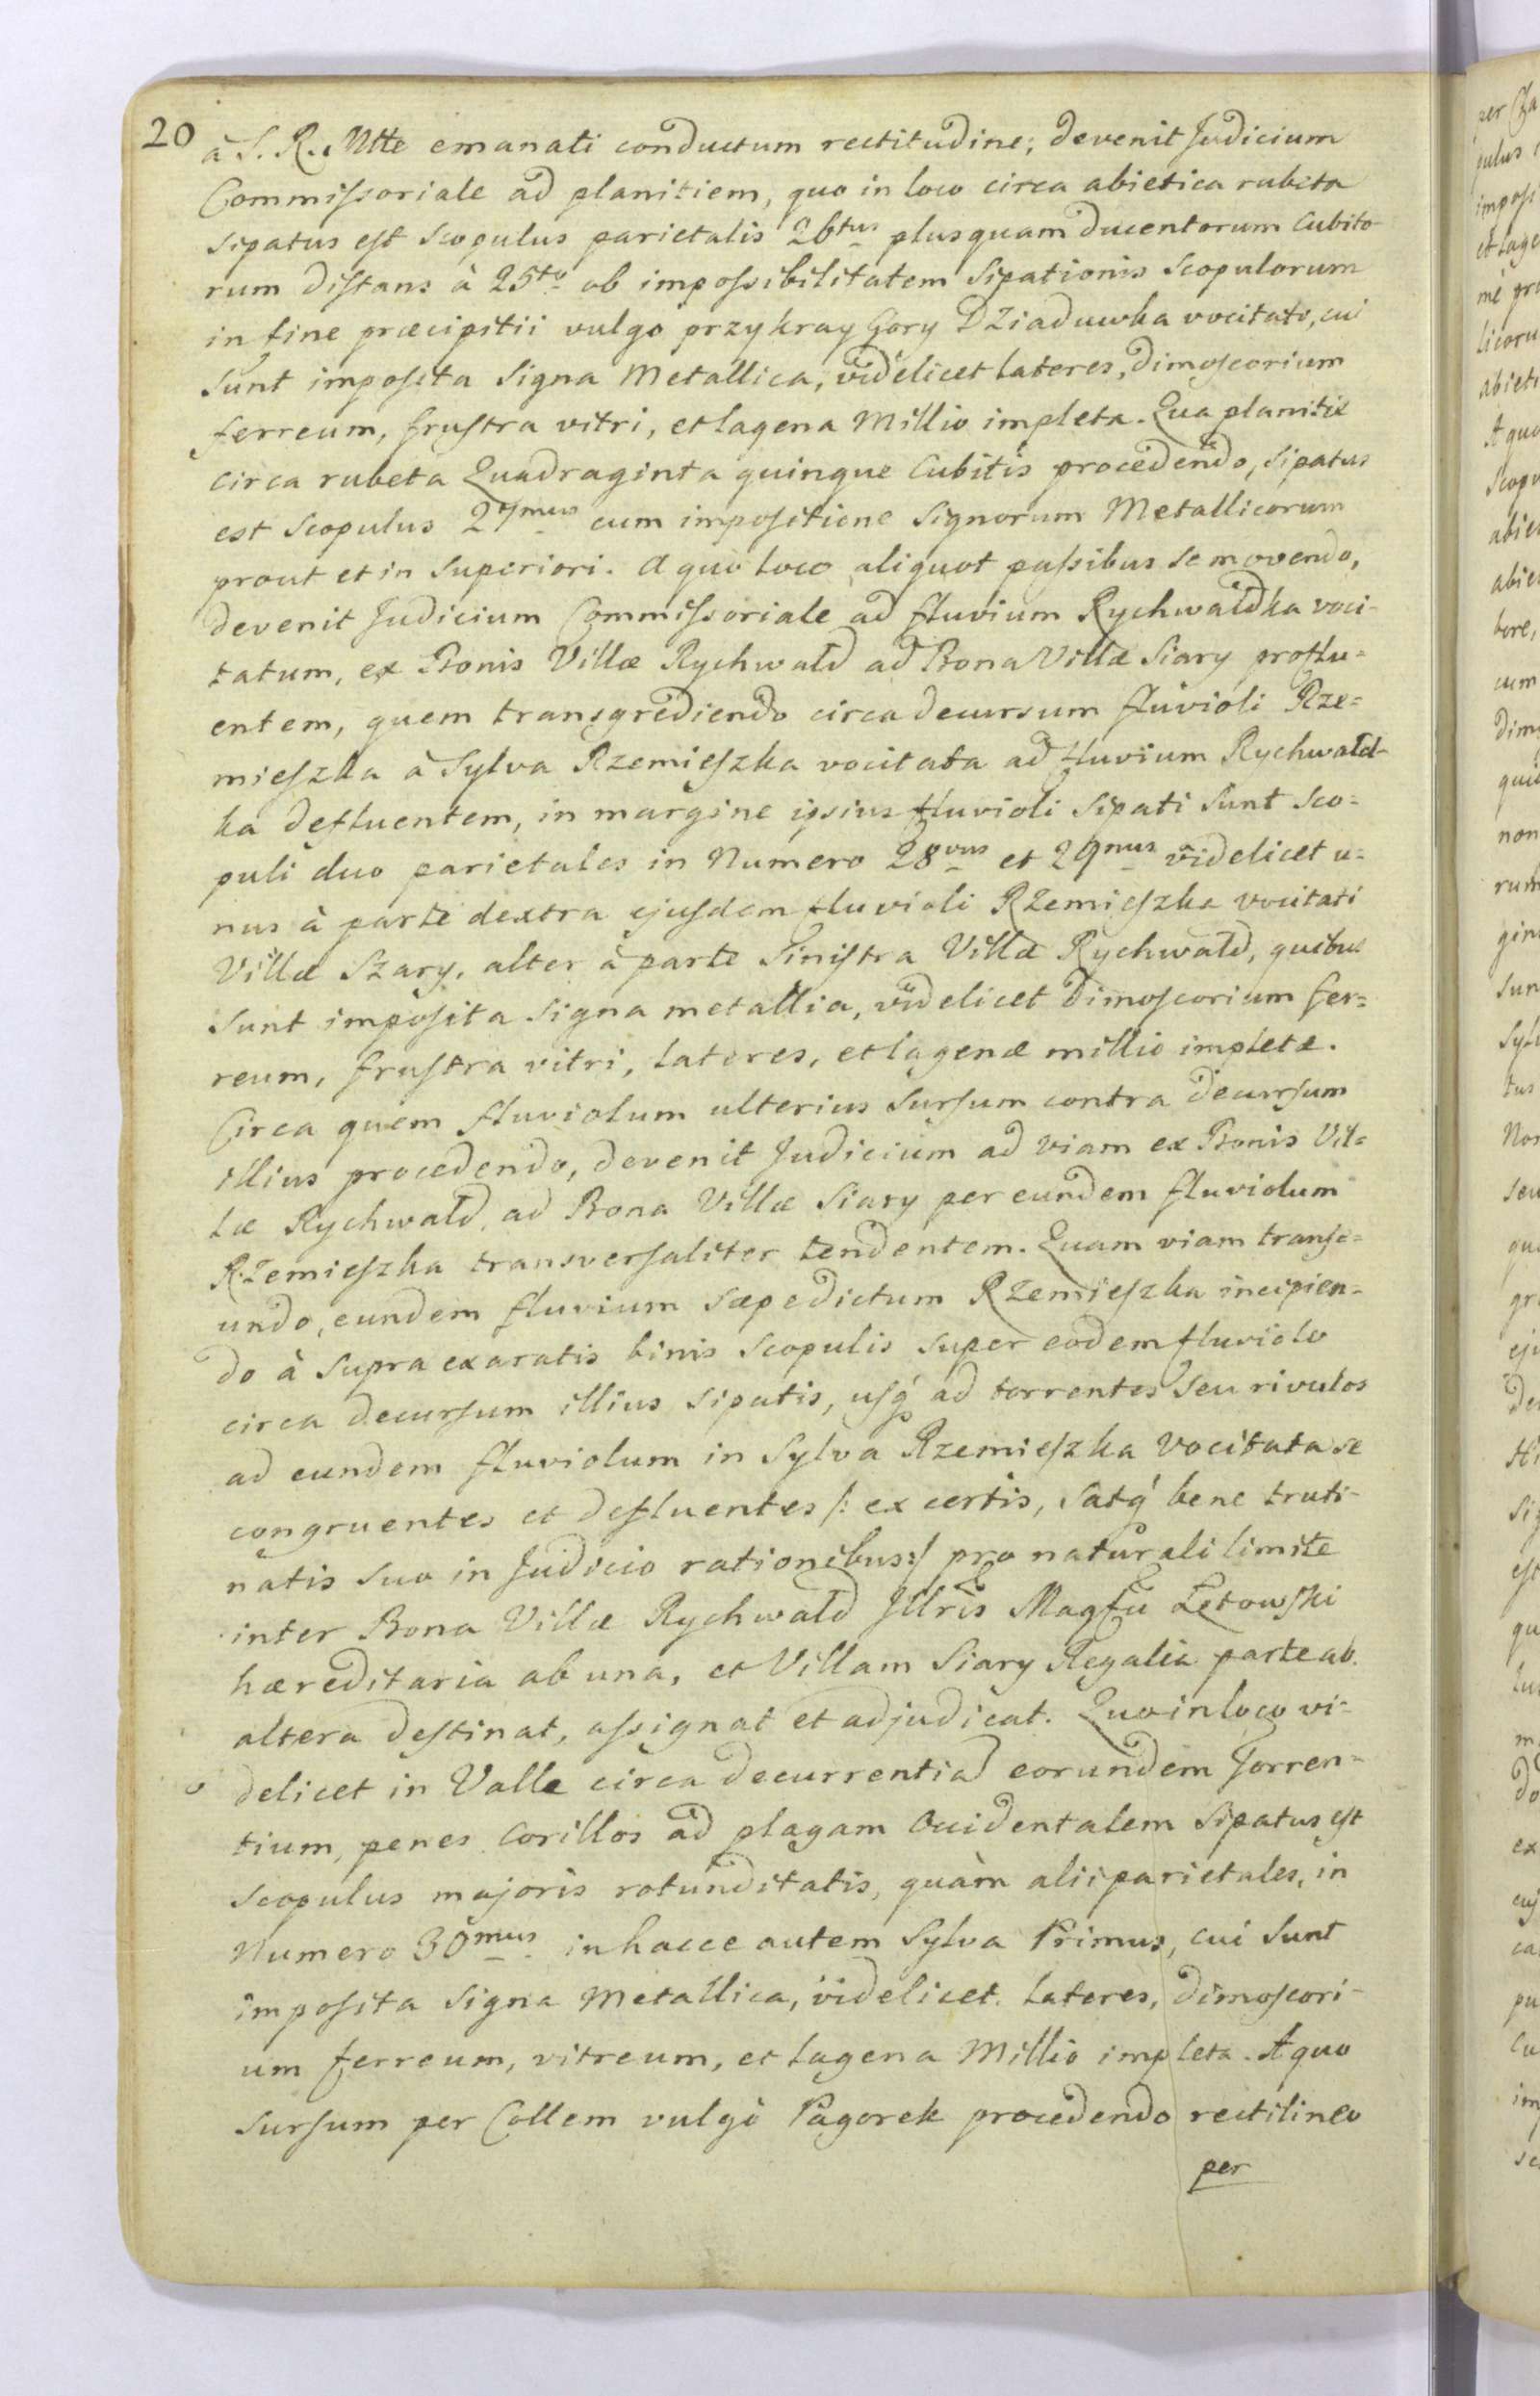 20
à S. R. Mtte emanati conductum rectitudine; devenit Judicium
Commissoriale ad planitiem, quo in loco circa abietica rubeta
sipatus est Scopulus parietalis 26tus plusquam ducentorum Cubito-
rum distans à 25to ob impossibilitatem Sipationis Scopulorum
in fine præcipitii vulgo przykray Gory Dziaduwka vocitato, cui
sunt imposita Signa Metallica, videlicet Lateres, dimoscorium
ferreum, frustra vitri, et lagena Millio impleta. Qua planitie
circa rubeta Quadraginta quinque Cubitis procedendo, sipatus
est Scopulus 27mus cum impositione Signorum Metallicorum
prout et in Superiori. A quo loco aliquot passibus se movendo,
devenit Judicium Commissoriale ad fluvium Rychwaldka voci-
tatum, ex Bonis Villæ Rychwald ad Bona Villæ Siary proflu=
entem, quem transgrediendo circa decursum fluvioli Rze=
mieszka à Sylva Rzemieszka vocitata ad fluvium Rychwald-
ka defluentem, in margine ipsius fluvioli Sipati Sunt Sco=
puli duo parietales in Numero 28vus et 29nus videlicet u=
nus à parte dextra ejusdem fluvioli RZemieszka vocitati
Villæ Szary, alter à parte Sinistra Villæ Rychwald, quibus
Sunt imposita Signa metallia, videlicet Dimoscorium fer=
reum, frustra vitri, Lateres, et lagenæ millio impletæ.
Circa quem fluviolum ulterius Sursum contra decursum
illius procedendo, devenit Judicium ad viam ex Bonis Vil=
læ Rychwald, ad Bona Villæ Siary per eundem fluviolum
RZemieszka transversaliter tendentem. Quam viam transe=
undo, eundem fluvium sæpedictum RZemieszka incipien=
do à Supra exaratis binis Scopulis super eodem fluviolo
circa decursum illius sipatis, usq ad torrentes Seu rivulos
ad eundem fluviolum in Sylva Rzemieszka vocitata se
congruentes et defluentes /: ex certis, Satq bene truti-
natis Suo in Judicio rationibus :/ pro naturali limite
inter Bona Villæ Rychwald Jllris Magfci Letowski
hæreditaria ab una, et Villam Siary Regalia parte ab
altera destinat, assignat et adjudicat. Quo in loco vi-
delicet in Valle circa decurrentia eorundem Torren=
tium, penes Corillos ad plagam Occidentalem Sipatus est
Scopulus majoris rotunditatis, quàm alii parietales, in
Numero 30mus in hacce autem Sylva Primus, cui Sunt
imposita Signa Metallica, videlicet Lateres, dimoscori-
um ferreum, vitreum, et Lagena Millio impleta. A quo
Sursum per Collem vulgò Pagorek procedendo rectilineo
per